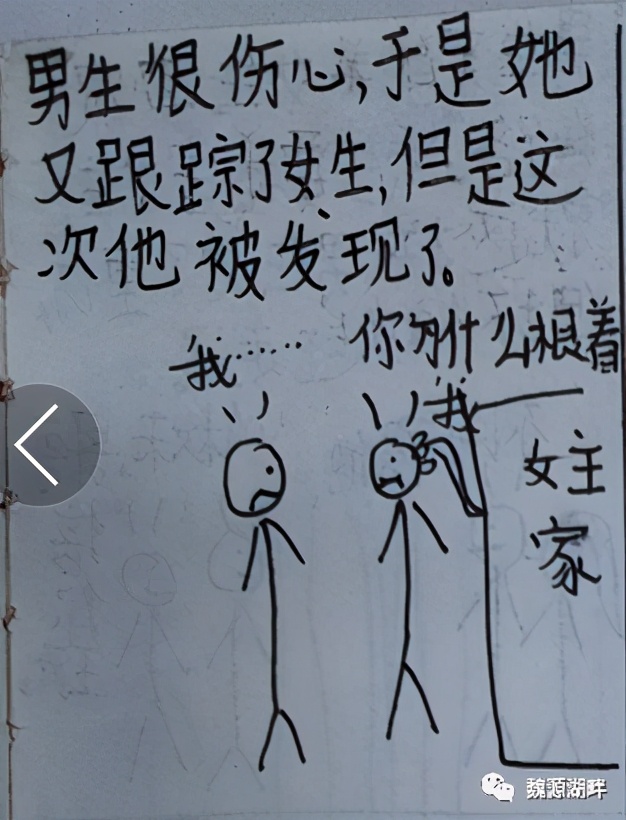 男生很伤心,于是她
又跟踪了女生,但是这
次他被发现了。
我……
你为什么根着
我
女主
家
魏源湖畔